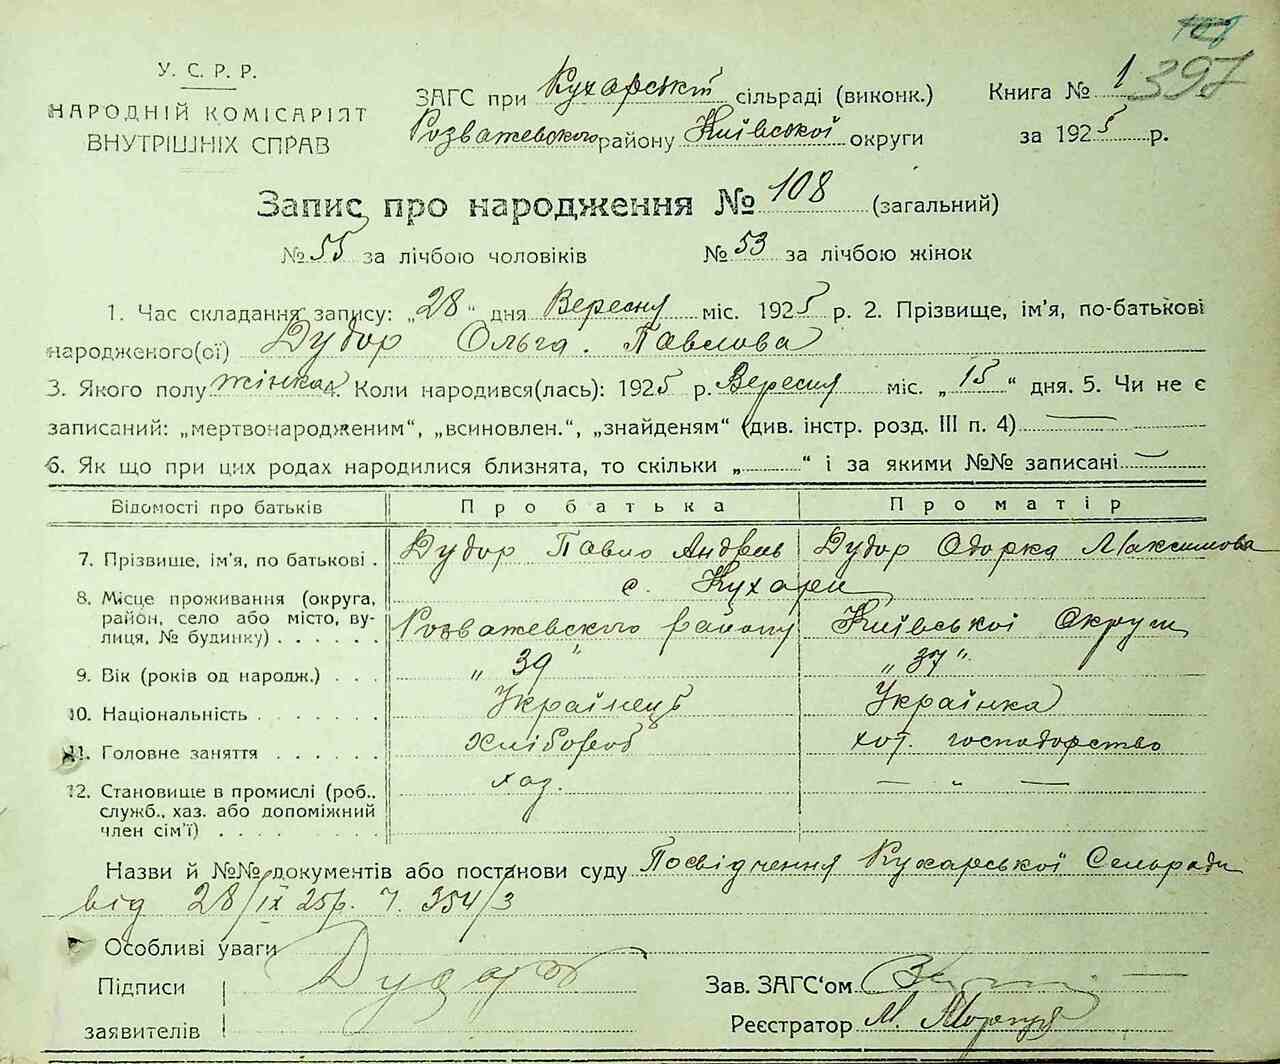 397
У. С. Р. Р.
НАРОДНІЙ КОМІСАРІЯТ
ВНУТРІШНІХ СПРАВ
ЗАГС при Кухарській сільраді (виконк.)
Розважевского району Київської округи
Книга № 1
за 1925 р.
Запис про народження № 108 (загальний)
№ 55 за лічбою чоловіків № 53 за лічбою жінок
1. Час складання запису: „28“ дня Вересня міс. 1925 р. 2. Прізвище, ім'я, по-батькові
народженого(ої) Дудор Ольга. Павлова
3. Якого полу жінка 4. Коли народився(лась): 1925 р. Вересня міс. „15“ дня. 5. Чи не є
записаний: „мертвонародженим“, „всиновлен.“, „знайденям“ (див. інстр. розд. III п. 4)
6. Як що при цих родах народилися близнята, то скільки „ “ і за якими №№ записані
Відомості про батьків Про батька Про матір
7. Прізвище, ім'я, по батькові . Дудор Павло Андреев Дудор Одорка Максимова
8. Місце проживання (округа, с. Кухари
район, село або місто, ву-
лиця, № будинку) . . . . . . Розважевского району Київської Округи
9. Вік (років од народж.) . . . „39“ „37“
10. Національність . . . . . . . Українець Українка
11. Головне заняття . . . . . . хлібороб хот. господарство
12. Становище в промислі (роб., хаз. — „ —
служб., хаз. або допоміжний
член сім'ї) . . . . . . . . .
Назви й №№ документів або постанови суду Посвідчення Кухарської Сельради
від 28/IX 25р. ч. 354/3
Особливі уваги
Підписи Дудор
заявителів
Зав. ЗАГС'ом
Реєстратор М.